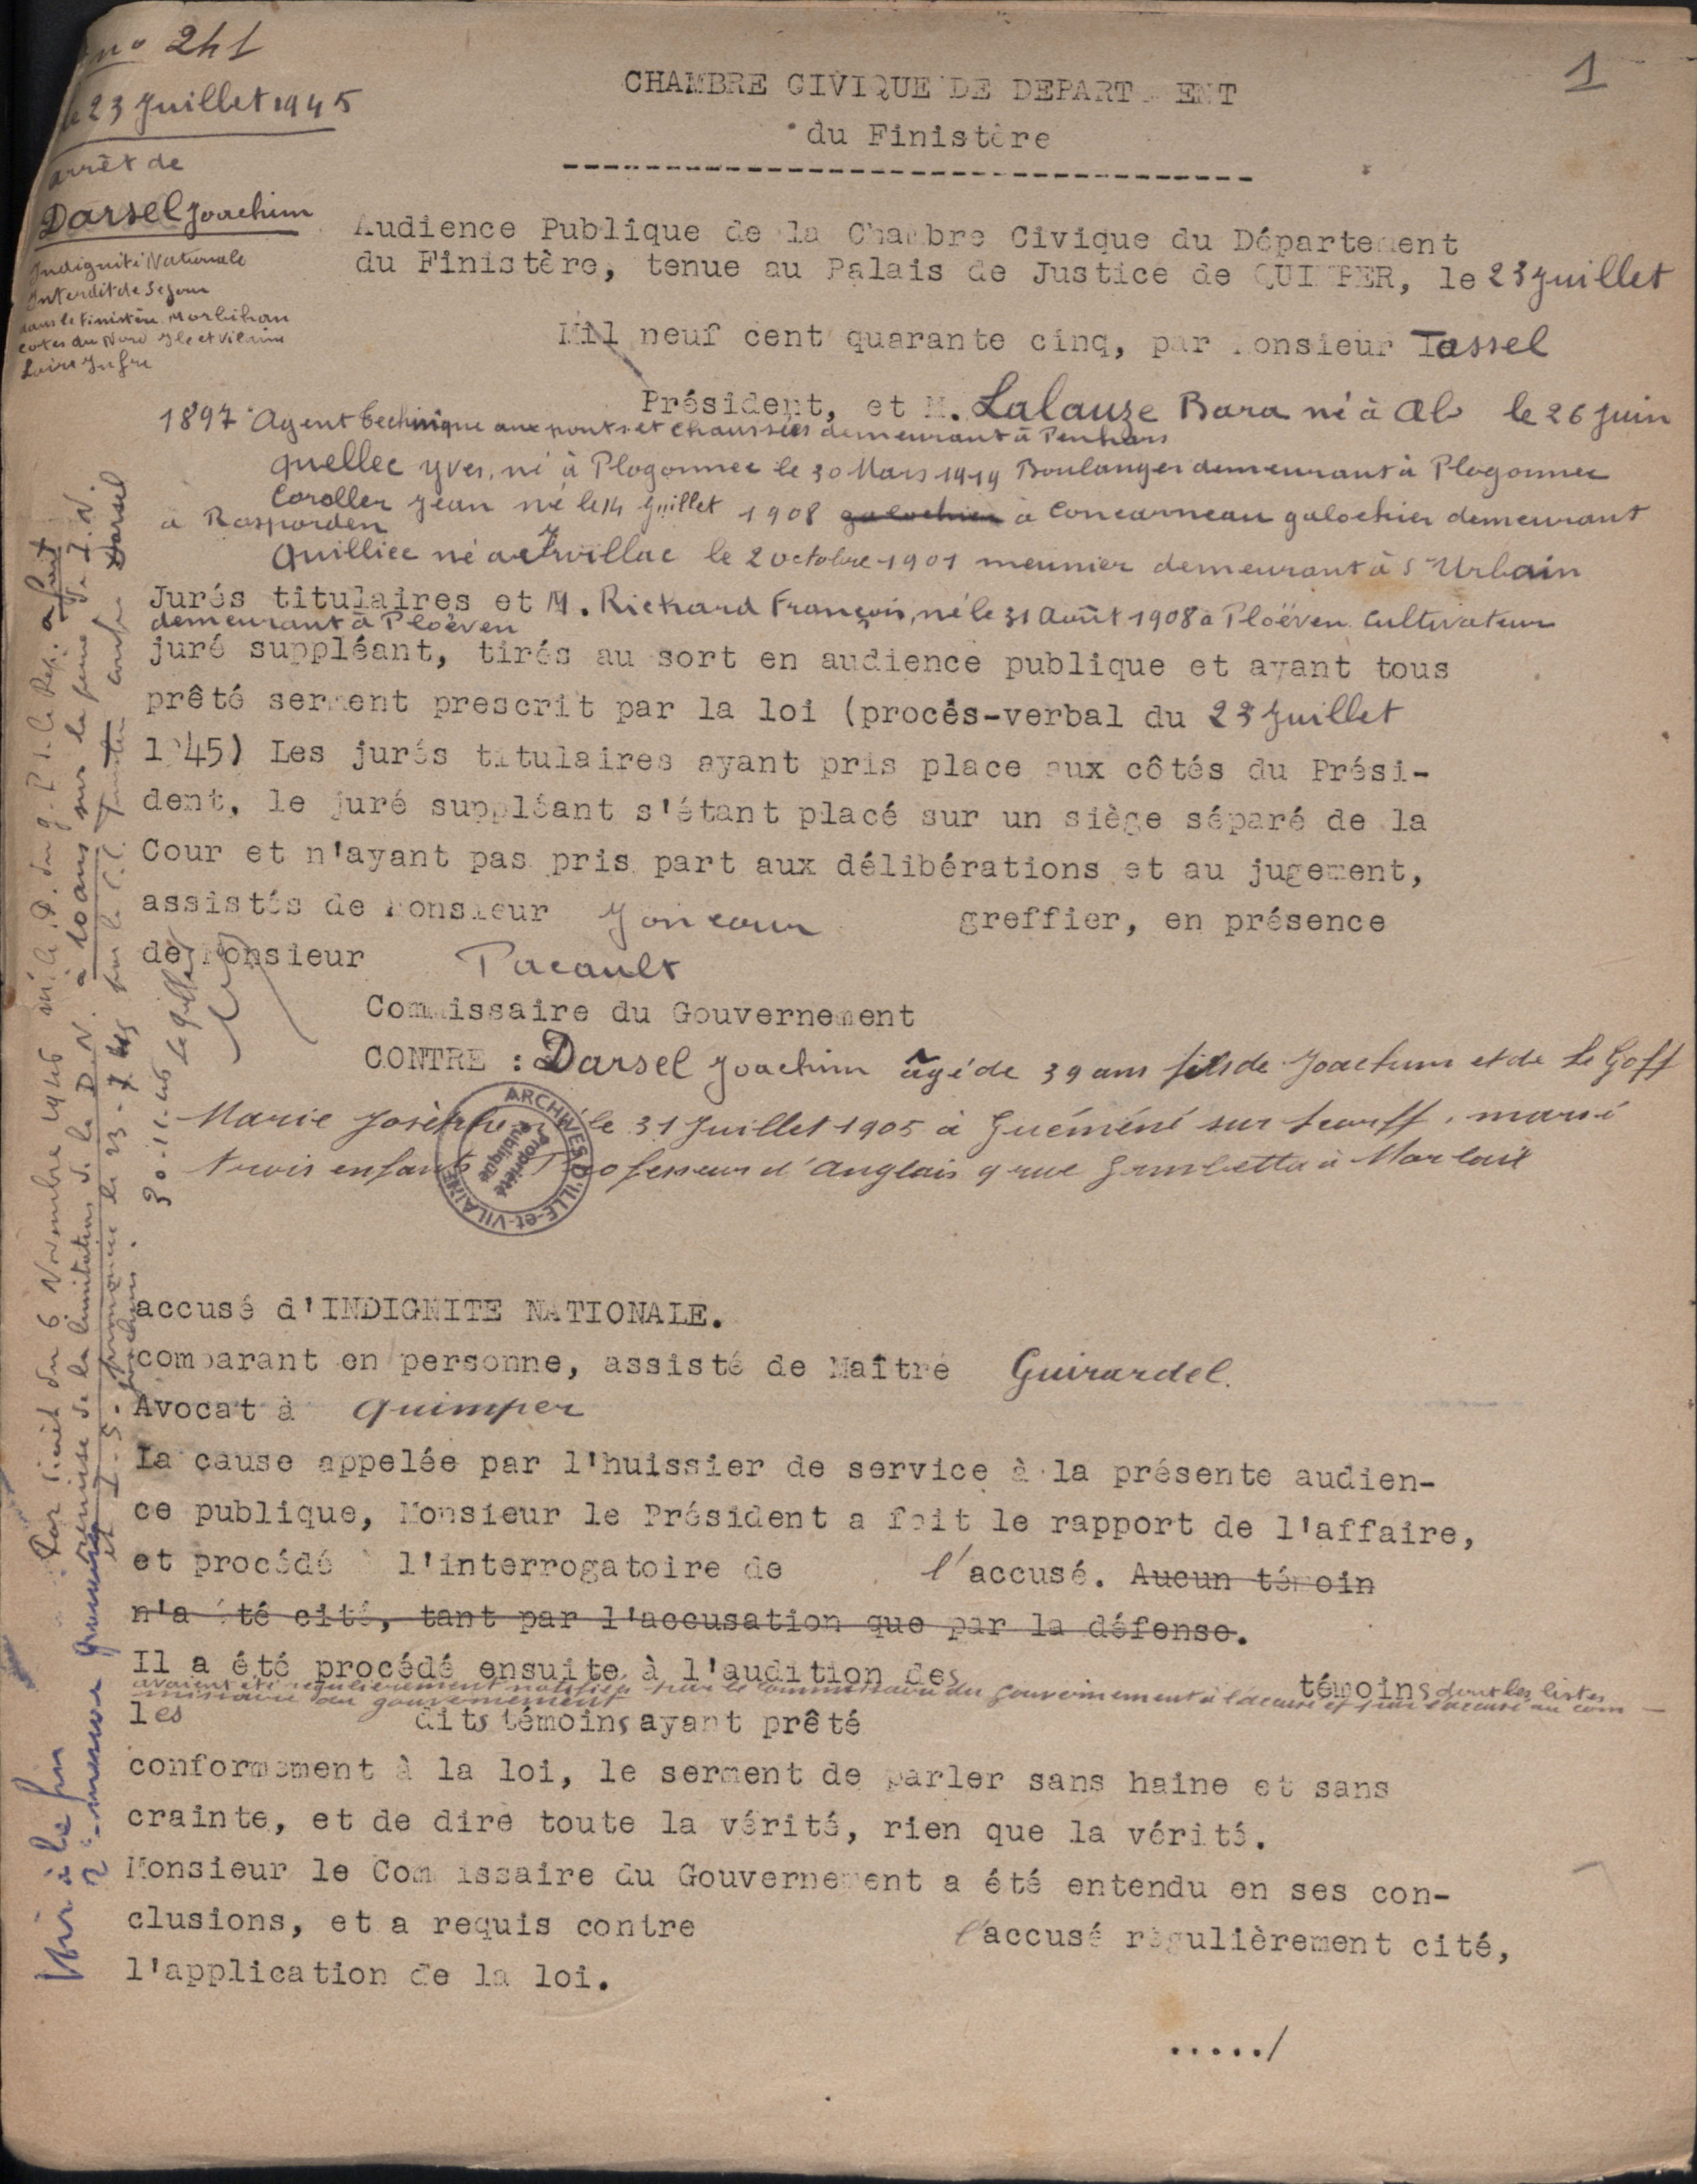 no 241
le 23 Juillet 1945
arrêt de
Darsel Joachim
Indignité Nationale
Interdit de Sejour
dans le Finistère Morbihan
Cotes du Nord Ile et Vilaine
Loire Infre
1
CHAMBRE CIVIQUE DE DEPART ENT
du Finistère
Audience Publique de la Chambre Civique du Département
du Finistère, tenue au Palais de Justice de QUIMPER, le 23 Juillet
Mil neuf cent quarante cinq, par Monsieur Tassel
Président, et M. Lalauze Bara né à Alb le 26 Juin
1897 Agent technique aux ponts et chaussées demeurant à Penhars
Quellec Yves, né à Plogonnec le 30 Mars 1919 Boulanger demeurant à Plogonnec
Coroller Jean né le 14 Juillet 1908 galochier à Concarneau galochier demeurant
à Rosporden
Quilliec né à Irvillac le 2 octobre 1901 meunier demeurant à St Urbain
Jurés titulaires et M. Richard François, né le 31 Août 1908 à Ploëven Cultivateur
demeurant à Ploëven
juré suppléant, tirés au sort en audience publique et ayant tous
prêté serment prescrit par la loi (procès-verbal du 23 Juillet
1945) Les jurés titulaires ayant pris place aux côtés du Prési-
dent, le juré suppléant s'étant placé sur un siège séparé de la
Cour et n'ayant pas pris part aux délibérations et au jugement,
assistés de Monsieur Joncour greffier, en présence
de Monsieur Pacault
Commissaire du Gouvernement
CONTRE : Darsel Joachim âgé de 39 ans fils de Joachim et de Le Goff
Marie Josèphe né le 31 Juillet 1905 à Guéméné sur Scorff, marié
trois enfants Professeur d'Anglais 9 rue Gambetta à Morlaix
ARCHIVES D'ILLE-et-VILAINE
Propriété
Publique
accusé d'INDIGNITE NATIONALE.
comparant en personne, assisté de Maître Guirardel.
Avocat à Quimper
La cause appelée par l'huissier de service à la présente audien-
ce publique, Monsieur le Président a fait le rapport de l'affaire,
et procédé l'interrogatoire de l'accusé. Aucun témoin
n'a été cité, tant par l'accusation que par la défense.
Il a été procédé ensuite à l'audition des témoins dont les listes
avaient été régulièrement notifiées par le Commissaire du Gouvernement à l'accusé et par l'accusé au com-
missaire du gouvernement
les dits témoins ayant prêté
conformément à la loi, le serment de parler sans haine et sans
crainte, et de dire toute la vérité, rien que la vérité.
Monsieur le Com issaire du Gouvernement a été entendu en ses con-
clusions, et a requis contre l'accusé régulièrement cité,
l'application de la loi.
...../
Par décret du 6 Novembre 1946 M. le P. du G. P. de la Rép. a fait
remise de la limitation de la D. N. à 10 ans sur la peine de I. N.
et I. S. prononcée le 23-7-45 par la C. C. Finistère contre Darsel
Joachim.
30-11-46 Le Greffier
Voir à la fin
2e mesure gracieuse